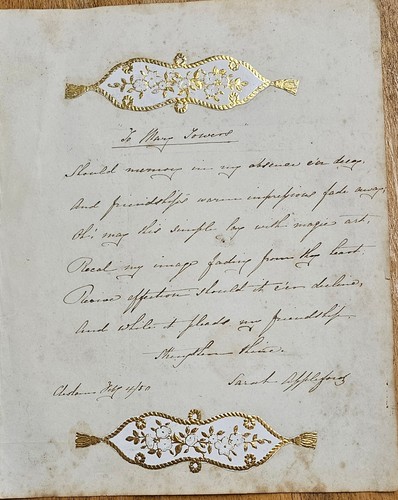 To Mary Towers
Should memory in my absence e'er decay,
And friendship's warm impressions fade away,
Oh! may this simple lay with magic art,
Recal my image fading from thy heart
Revive affection should it e'er decline,
And while it pleads my friendship
Strengthen thine.
Sarah Appleford